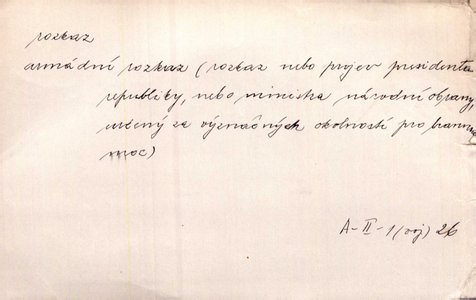 rozkaz
armádní rozkaz (rozkaz nebo projev presidenta
republiky, nebo ministra národní obrany,
určený za význačných okolností pro brannou
moc)
A-II-1 (voj) 26